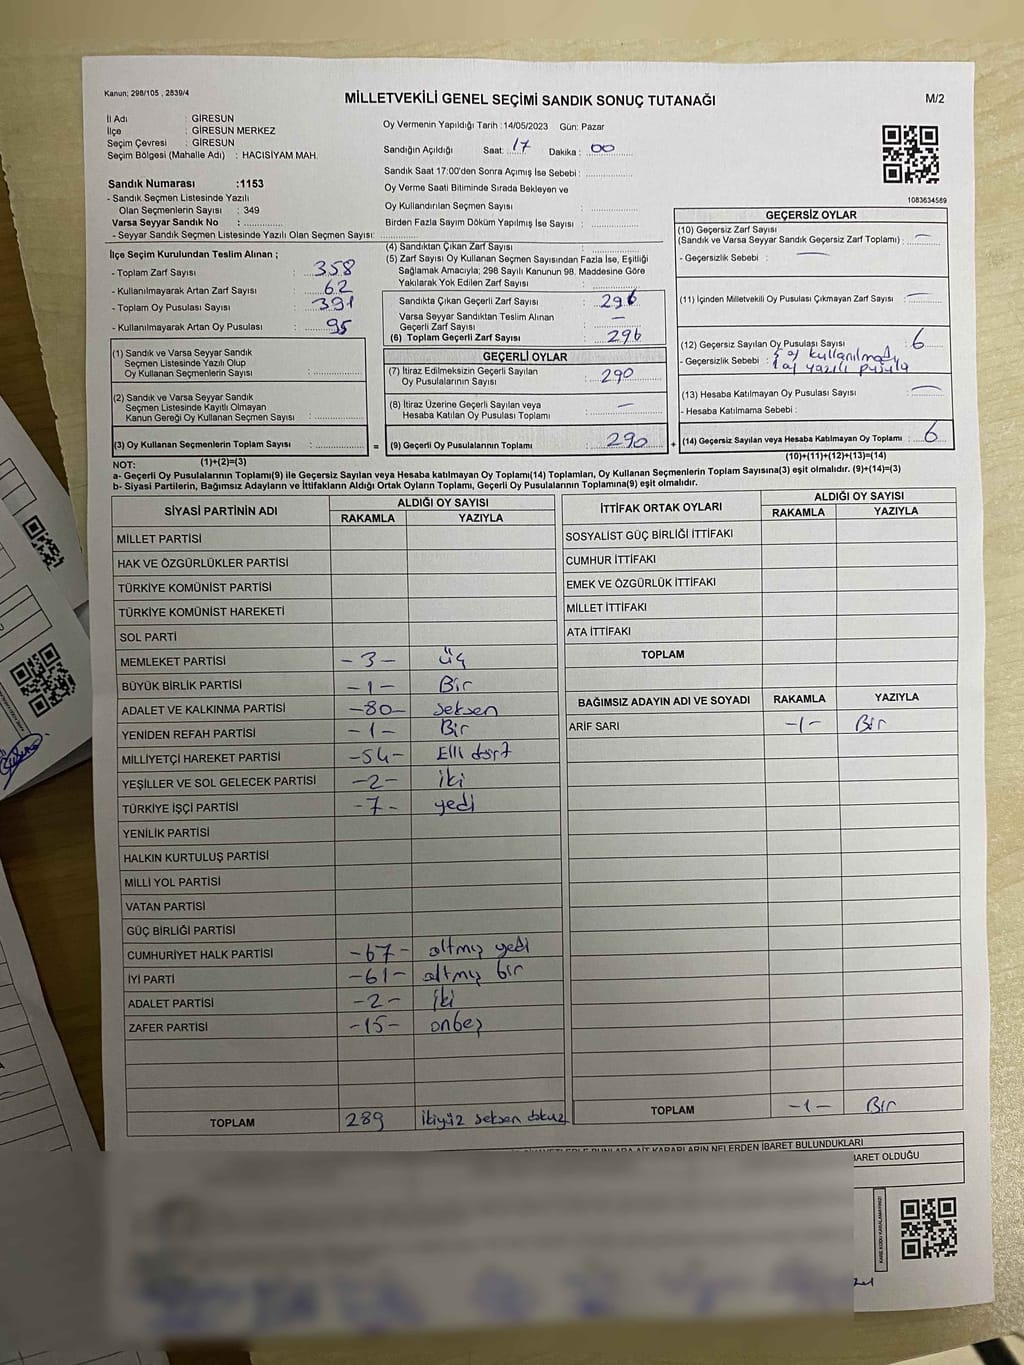 Kanun; 298/105 , 2839/4
MİLLETVEKİLİ GENEL SEÇİMİ SANDIK SONUÇ TUTANAĞI
M/2
İl Adı : GİRESUN
İlçe : GİRESUN MERKEZ
Seçim Çevresi : GİRESUN
Seçim Bölgesi (Mahalle Adı) : HACISİYAM MAH.
Sandık Numarası :1153
- Sandık Seçmen Listesinde Yazılı
Olan Seçmenlerin Sayısı : 349
Varsa Seyyar Sandık No :
- Seyyar Sandık Seçmen Listesinde Yazılı Olan Seçmen Sayısı:
Oy Vermenin Yapıldığı Tarih :14/05/2023 Gün: Pazar
Sandığın Açıldığı Saat: 17 Dakika : 00
Sandık Saat 17:00'den Sonra Açımış İse Sebebi :
Oy Verme Saati Bitiminde Sırada Bekleyen ve
Oy Kullandırılan Seçmen Sayısı :
Birden Fazla Sayım Döküm Yapılmış İse Sayısı :
1083634589
İlçe Seçim Kurulundan Teslim Alınan ;
- Toplam Zarf Sayısı : 358
- Kullanılmayarak Artan Zarf Sayısı : 62
- Toplam Oy Pusulası Sayısı : 391
- Kullanılmayarak Artan Oy Pusulası : 95
(1) Sandık ve Varsa Seyyar Sandık
Seçmen Listesinde Yazılı Olup
Oy Kullanan Seçmenlerin Sayısı :
(2) Sandık ve Varsa Seyyar Sandık
Seçmen Listesinde Kayıtlı Olmayan
Kanun Gereği Oy Kullanan Seçmen Sayısı :
(3) Oy Kullanan Seçmenlerin Toplam Sayısı : =
(1)+(2)=(3)
(4) Sandıktan Çıkan Zarf Sayısı :
(5) Zarf Sayısı Oy Kullanan Seçmen Sayısından Fazla İse, Eşitliği
Sağlamak Amacıyla; 298 Sayılı Kanunun 98. Maddesine Göre
Yakılarak Yok Edilen Zarf Sayısı :
Sandıkta Çıkan Geçerli Zarf Sayısı : 296
Varsa Seyyar Sandıktan Teslim Alınan
Geçerli Zarf Sayısı : —
(6) Toplam Geçerli Zarf Sayısı : 296
GEÇERLİ OYLAR
(7) İtiraz Edilmeksizin Geçerli Sayılan
Oy Pusulalarının Sayısı : 290
(8) İtiraz Üzerine Geçerli Sayılan veya
Hesaba Katılan Oy Pusulası Toplamı : —
(9) Geçerli Oy Pusulalarının Toplamı : 290 +
GEÇERSİZ OYLAR
(10) Geçersiz Zarf Sayısı
(Sandık ve Varsa Seyyar Sandık Geçersiz Zarf Toplamı) : —
- Geçersizlik Sebebi : —
(11) İçinden Milletvekili Oy Pusulası Çıkmayan Zarf Sayısı : —
(12) Geçersiz Sayılan Oy Pusulası Sayısı : 6
- Geçersizlik Sebebi : 5 oy kullanılmadı
1 oy yazılı pusula
(13) Hesaba Katılmayan Oy Pusulası Sayısı : —
- Hesaba Katılmama Sebebi :
(14) Geçersiz Sayılan veya Hesaba Katılmayan Oy Toplamı : 6
(10)+(11)+(12)+(13)=(14)
NOT:
a- Geçerli Oy Pusulalarının Toplamı(9) ile Geçersiz Sayılan veya Hesaba katılmayan Oy Toplamı(14) Toplamları, Oy Kullanan Seçmenlerin Toplam Sayısına(3) eşit olmalıdır. (9)+(14)=(3)
b- Siyasi Partilerin, Bağımsız Adayların ve İttifakların Aldığı Ortak Oyların Toplamı, Geçerli Oy Pusulalarının Toplamına(9) eşit olmalıdır.
SİYASİ PARTİNİN ADI ALDIĞI OY SAYISI
RAKAMLA YAZIYLA
MİLLET PARTİSİ
HAK VE ÖZGÜRLÜKLER PARTİSİ
TÜRKİYE KOMÜNİST PARTİSİ
TÜRKİYE KOMÜNİST HAREKETİ
SOL PARTİ
MEMLEKET PARTİSİ -3- üç
BÜYÜK BİRLİK PARTİSİ -1- Bir
ADALET VE KALKINMA PARTİSİ -80- seksen
YENİDEN REFAH PARTİSİ -1- Bir
MİLLİYETÇİ HAREKET PARTİSİ -54- Elli dört
YEŞİLLER VE SOL GELECEK PARTİSİ -2- iki
TÜRKİYE İŞÇİ PARTİSİ -7- yedi
YENİLİK PARTİSİ
HALKIN KURTULUŞ PARTİSİ
MİLLİ YOL PARTİSİ
VATAN PARTİSİ
GÜÇ BİRLİĞİ PARTİSİ
CUMHURİYET HALK PARTİSİ -67- altmış yedi
İYİ PARTİ -61- altmış bir
ADALET PARTİSİ -2- iki
ZAFER PARTİSİ -15- onbeş
TOPLAM 289 ikiyüz seksen dokuz
İTTİFAK ORTAK OYLARI ALDIĞI OY SAYISI
RAKAMLA YAZIYLA
SOSYALİST GÜÇ BİRLİĞİ İTTİFAKI
CUMHUR İTTİFAKI
EMEK VE ÖZGÜRLÜK İTTİFAKI
MİLLET İTTİFAKI
ATA İTTİFAKI
TOPLAM
BAĞIMSIZ ADAYIN ADI VE SOYADI RAKAMLA YAZIYLA
ARİF SARI -1- Bir
TOPLAM -1- Bir
KARARLARIN NELERDEN İBARET BULUNDUKLARI
İBARET OLDUĞU